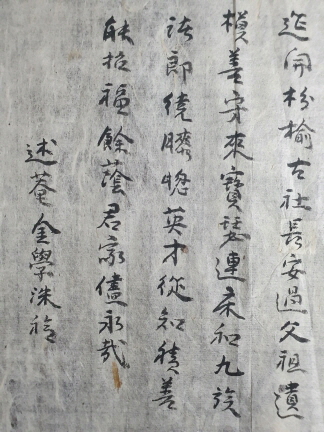 開枌榆古社長安過父祖遺
模善守來寶瑟連柔和九族
諸郎繞膝總英才從知積善
能招福餘蔭君家儘永哉
述菴金學洙